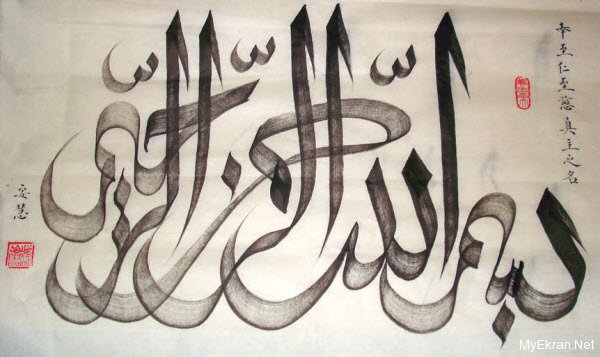 بسم الله الرحمن الرحيم
奉至仁至慈真主之名
MyEkran.Net